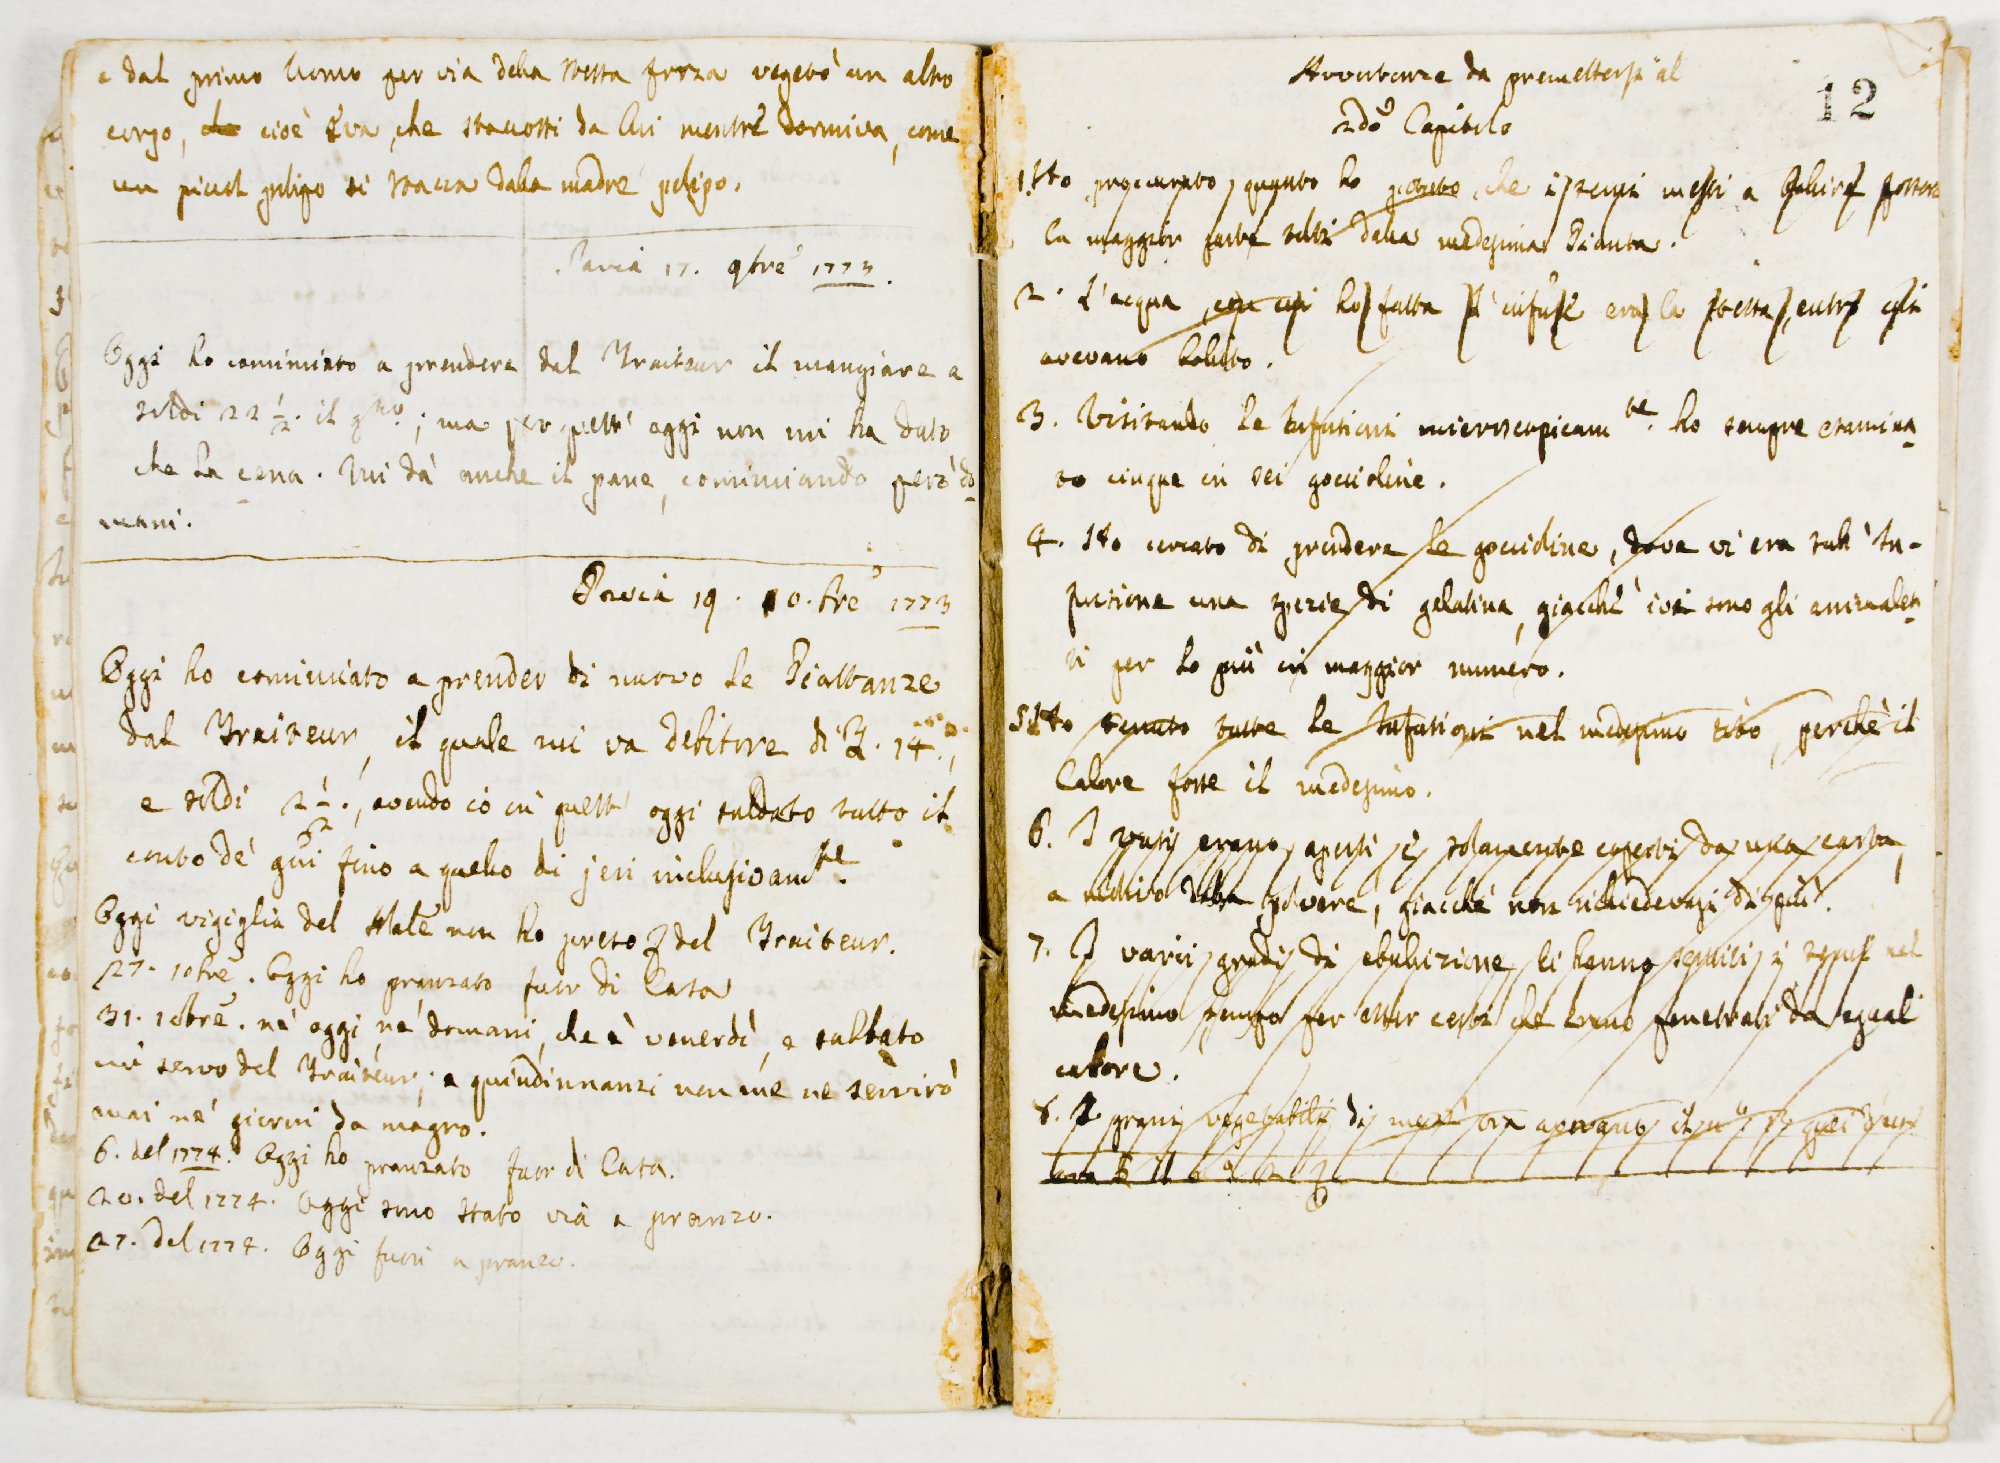 e dal primo Uomo per via della stessa forza vegetò un altro
corpo, che cioè Eva, che staccossi da lui mentre dormiva, come
un piccol polipo si stacca dalla madre polipo.
Pavia 17. 9bre 1773.
Oggi ho cominciato a prendere dal Traiteur il mangiare a
soldi 22 1/2. il gno.; ma per quest' oggi non mi ha dato
che la cena. Mi dà anche il pane, cominciando però do
mani.
Pavia 19. 10.bre 1773
Oggi ho cominciato a prender di nuovo le Piattanze
dal Traiteur, il quale mi va debitore di 14.
e soldi 2 1/2., avendo io in quest' oggi saldato tutto il
conto de' qui fino a quello di jeri inclusivamte.
Oggi vigiglia del Natle non ho preso del Traiteur.
27. 10bre. Oggi ho pranzato fuor di Casa
31. 10bre. nè oggi, nè domani, che è venerdì, e sabbato
mi servo del Traiteur; e quindinnanzi non me ne servirò
mai ne' giorni da magro.
6. del 1774. Oggi ho pranzato fuor di Casa.
20. del 1774. Oggi sono stato via a pranzo.
27. del 1774. Oggi fuori a pranzo.
Avvertenze da premettersi al
2do Capitolo
12
1. Ho procurato, quanto ho potuto, che i semi messi a bollire fossero
la maggior parte tolti dalla medesima Pianta.
2. L'acqua, con cui ho fatta l'infusi era la stessa, entro cui
avevano bollito.
3. Visitando le Infusioni microscopicamte. ho sempre esamina
to cinque in sei goccioline.
4. Ho cercato di prendere le goccioline, dove vi era sull' In-
fusione una spezie di gelatina, giacchè ivi sono gli animalet
ti per lo più in maggior numero.
5. Ho tenuto tutte le Infusioni nel medesimo sito, perchè il
Calore fosse il medesimo.
6. I vasi erano aperti, e solamente coperti da una carta,
a motivo della polvere, giacchè non richiedevasi di più.
7. I varii gradi di ebullizione li hanno sentiti i semi nel
medesimo tempo per esser certi che erano penetrati da egual
calore.
8. I grani vegetabili di